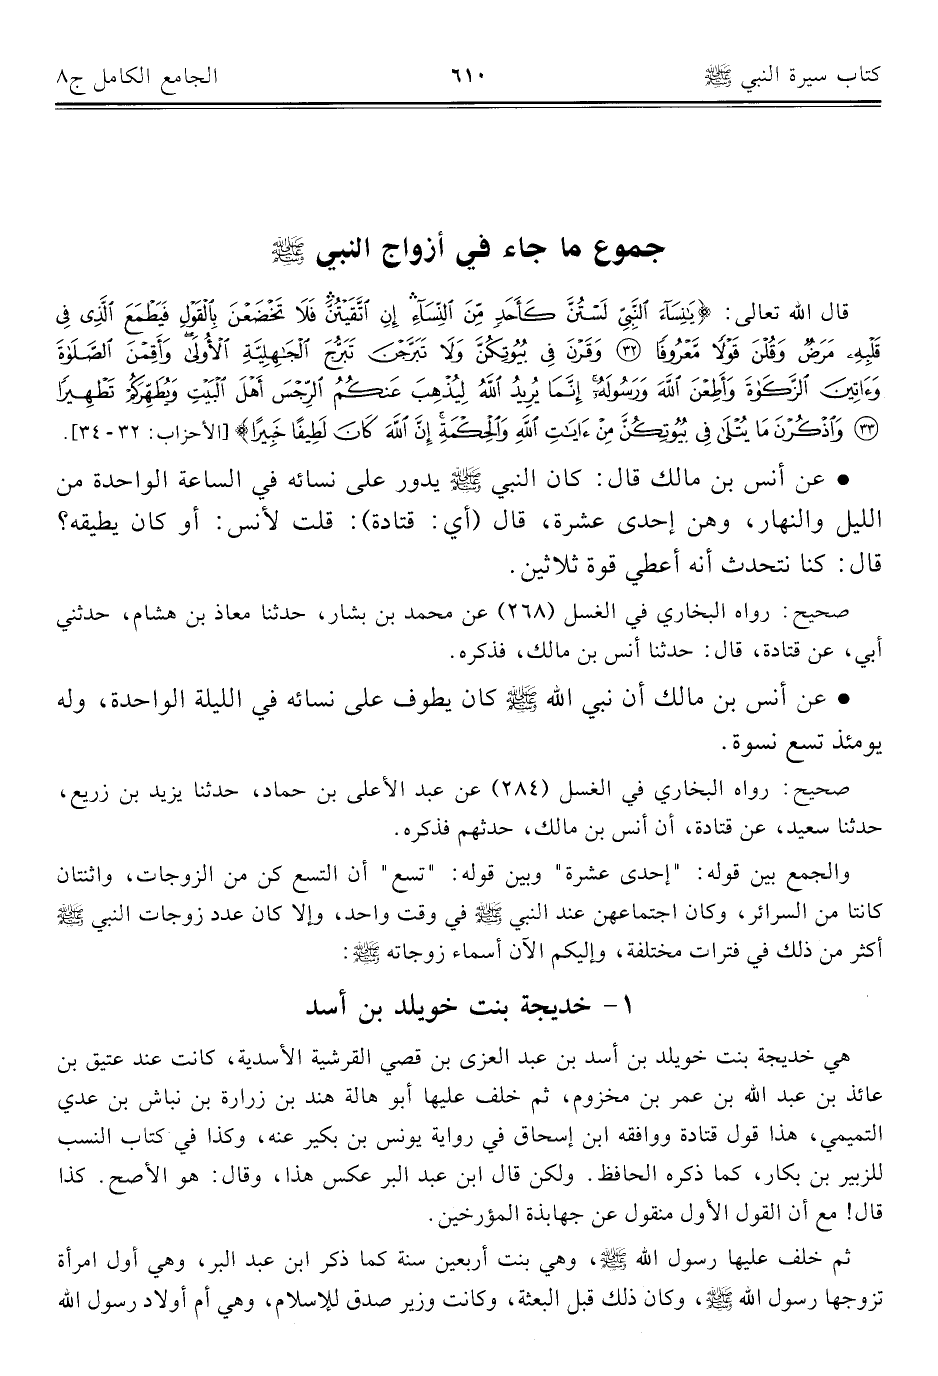 كتاب سيرة النبي ﷺ ٦١٠ الجامع الكامل ج٨
جموع ما جاء في أزواج النبي ﷺ
قال الله تعالى: ﴿يَٰنِسَآءَ ٱلنَّبِيِّ لَسۡتُنَّ كَأَحَدٖ مِّنَ ٱلنِّسَآءِ إِنِ ٱتَّقَيۡتُنَّۚ فَلَا تَخۡضَعۡنَ بِٱلۡقَوۡلِ فَيَطۡمَعَ ٱلَّذِي فِي
قَلۡبِهِۦ مَرَضٞ وَقُلۡنَ قَوۡلٗا مَّعۡرُوفٗا ٣٢ وَقَرۡنَ فِي بُيُوتِكُنَّ وَلَا تَبَرَّجۡنَ تَبَرُّجَ ٱلۡجَٰهِلِيَّةِ ٱلۡأُولَىٰۖ وَأَقِمۡنَ ٱلصَّلَوٰةَ
وَءَاتِينَ ٱلزَّكَوٰةَ وَأَطِعۡنَ ٱللَّهَ وَرَسُولَهُۥٓۚ إِنَّمَا يُرِيدُ ٱللَّهُ لِيُذۡهِبَ عَنكُمُ ٱلرِّجۡسَ أَهۡلَ ٱلۡبَيۡتِ وَيُطَهِّرَكُمۡ تَطۡهِيرٗا
٣٣ وَٱذۡكُرۡنَ مَا يُتۡلَىٰ فِي بُيُوتِكُنَّ مِنۡ ءَايَٰتِ ٱللَّهِ وَٱلۡحِكۡمَةِۚ إِنَّ ٱللَّهَ كَانَ لَطِيفًا خَبِيرًا﴾ [الأحزاب: ٣٢-٣٤].
• عن أنس بن مالك قال: كان النبي ﷺ يدور على نسائه في الساعة الواحدة من
الليل والنهار، وهن إحدى عشرة، قال (أي: قتادة): قلت لأنس: أو كان يطيقه؟
قال: كنا نتحدث أنه أعطي قوة ثلاثين.
صحيح: رواه البخاري في الغسل (٢٦٨) عن محمد بن بشار، حدثنا معاذ بن هشام، حدثني
أبي، عن قتادة، قال: حدثنا أنس بن مالك، فذكره.
• عن أنس بن مالك أن نبي الله ﷺ كان يطوف على نسائه في الليلة الواحدة، وله
يومئذ تسع نسوة.
صحيح: رواه البخاري في الغسل (٢٨٤) عن عبد الأعلى بن حماد، حدثنا يزيد بن زريع،
حدثنا سعيد، عن قتادة، أن أنس بن مالك، حدثهم فذكره.
والجمع بين قوله: "إحدى عشرة" وبين قوله: "تسع" أن التسع كن من الزوجات، واثنتان
كانتا من السرائر، وكان اجتماعهن عند النبي ﷺ في وقت واحد، وإلا كان عدد زوجات النبي ﷺ
أكثر من ذلك في فترات مختلفة، وإليكم الآن أسماء زوجاته ﷺ:
١- خديجة بنت خويلد بن أسد
هي خديجة بنت خويلد بن أسد بن عبد العزى بن قصي القرشية الأسدية، كانت عند عتيق بن
عائذ بن عبد الله بن عمر بن مخزوم، ثم خلف عليها أبو هالة هند بن زرارة بن نباش بن عدي
التميمي، هذا قول قتادة ووافقه ابن إسحاق في رواية يونس بن بكير عنه، وكذا في كتاب النسب
للزبير بن بكار، كما ذكره الحافظ. ولكن قال ابن عبد البر عكس هذا، وقال: هو الأصح. كذا
قال! مع أن القول الأول منقول عن جهابذة المؤرخين.
ثم خلف عليها رسول الله ﷺ، وهي بنت أربعين سنة كما ذكر ابن عبد البر، وهي أول امرأة
تزوجها رسول الله ﷺ، وكان ذلك قبل البعثة، وكانت وزير صدق للإسلام، وهي أم أولاد رسول الله